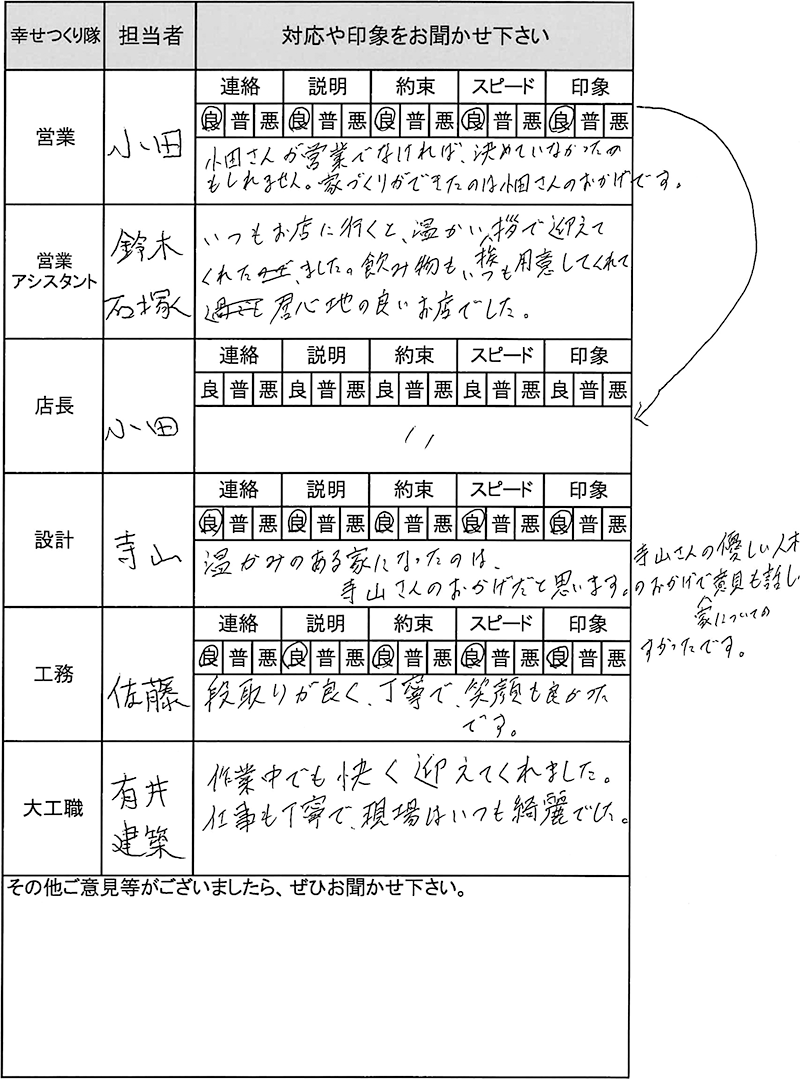 幸せつくり隊 担当者 対応や印象をお聞かせ下さい
営業 小田
連絡 説明 約束 スピード 印象
良 普 悪 良 普 悪 良 普 悪 良 普 悪 良 普 悪
小田さんが営業でなければ、決めていなかったか
もしれません。家づくりができたのは小田さんのおかげです。
営業
アシスタント
鈴木
石塚
いつもお店に行くと、温かい挨拶で迎えて
くれました。飲み物もいつも用意してくれて
居心地の良いお店でした。
店長 小田
連絡 説明 約束 スピード 印象
良 普 悪 良 普 悪 良 普 悪 良 普 悪 良 普 悪
〃
設計 寺山
連絡 説明 約束 スピード 印象
良 普 悪 良 普 悪 良 普 悪 良 普 悪 良 普 悪
温かみのある家になったのは、
寺山さんのおかげだと思います。
寺山さんの優しい人柄
のおかげで家についての意見も話しや
すかったです。
工務 佐藤
連絡 説明 約束 スピード 印象
良 普 悪 良 普 悪 良 普 悪 良 普 悪 良 普 悪
段取りが良く、丁寧で、笑顔も良かった
です。
大工職
有井
建築
作業中でも快く迎えてくれました。
仕事も丁寧で、現場はいつも綺麗でした。
その他ご意見等がございましたら、ぜひお聞かせ下さい。